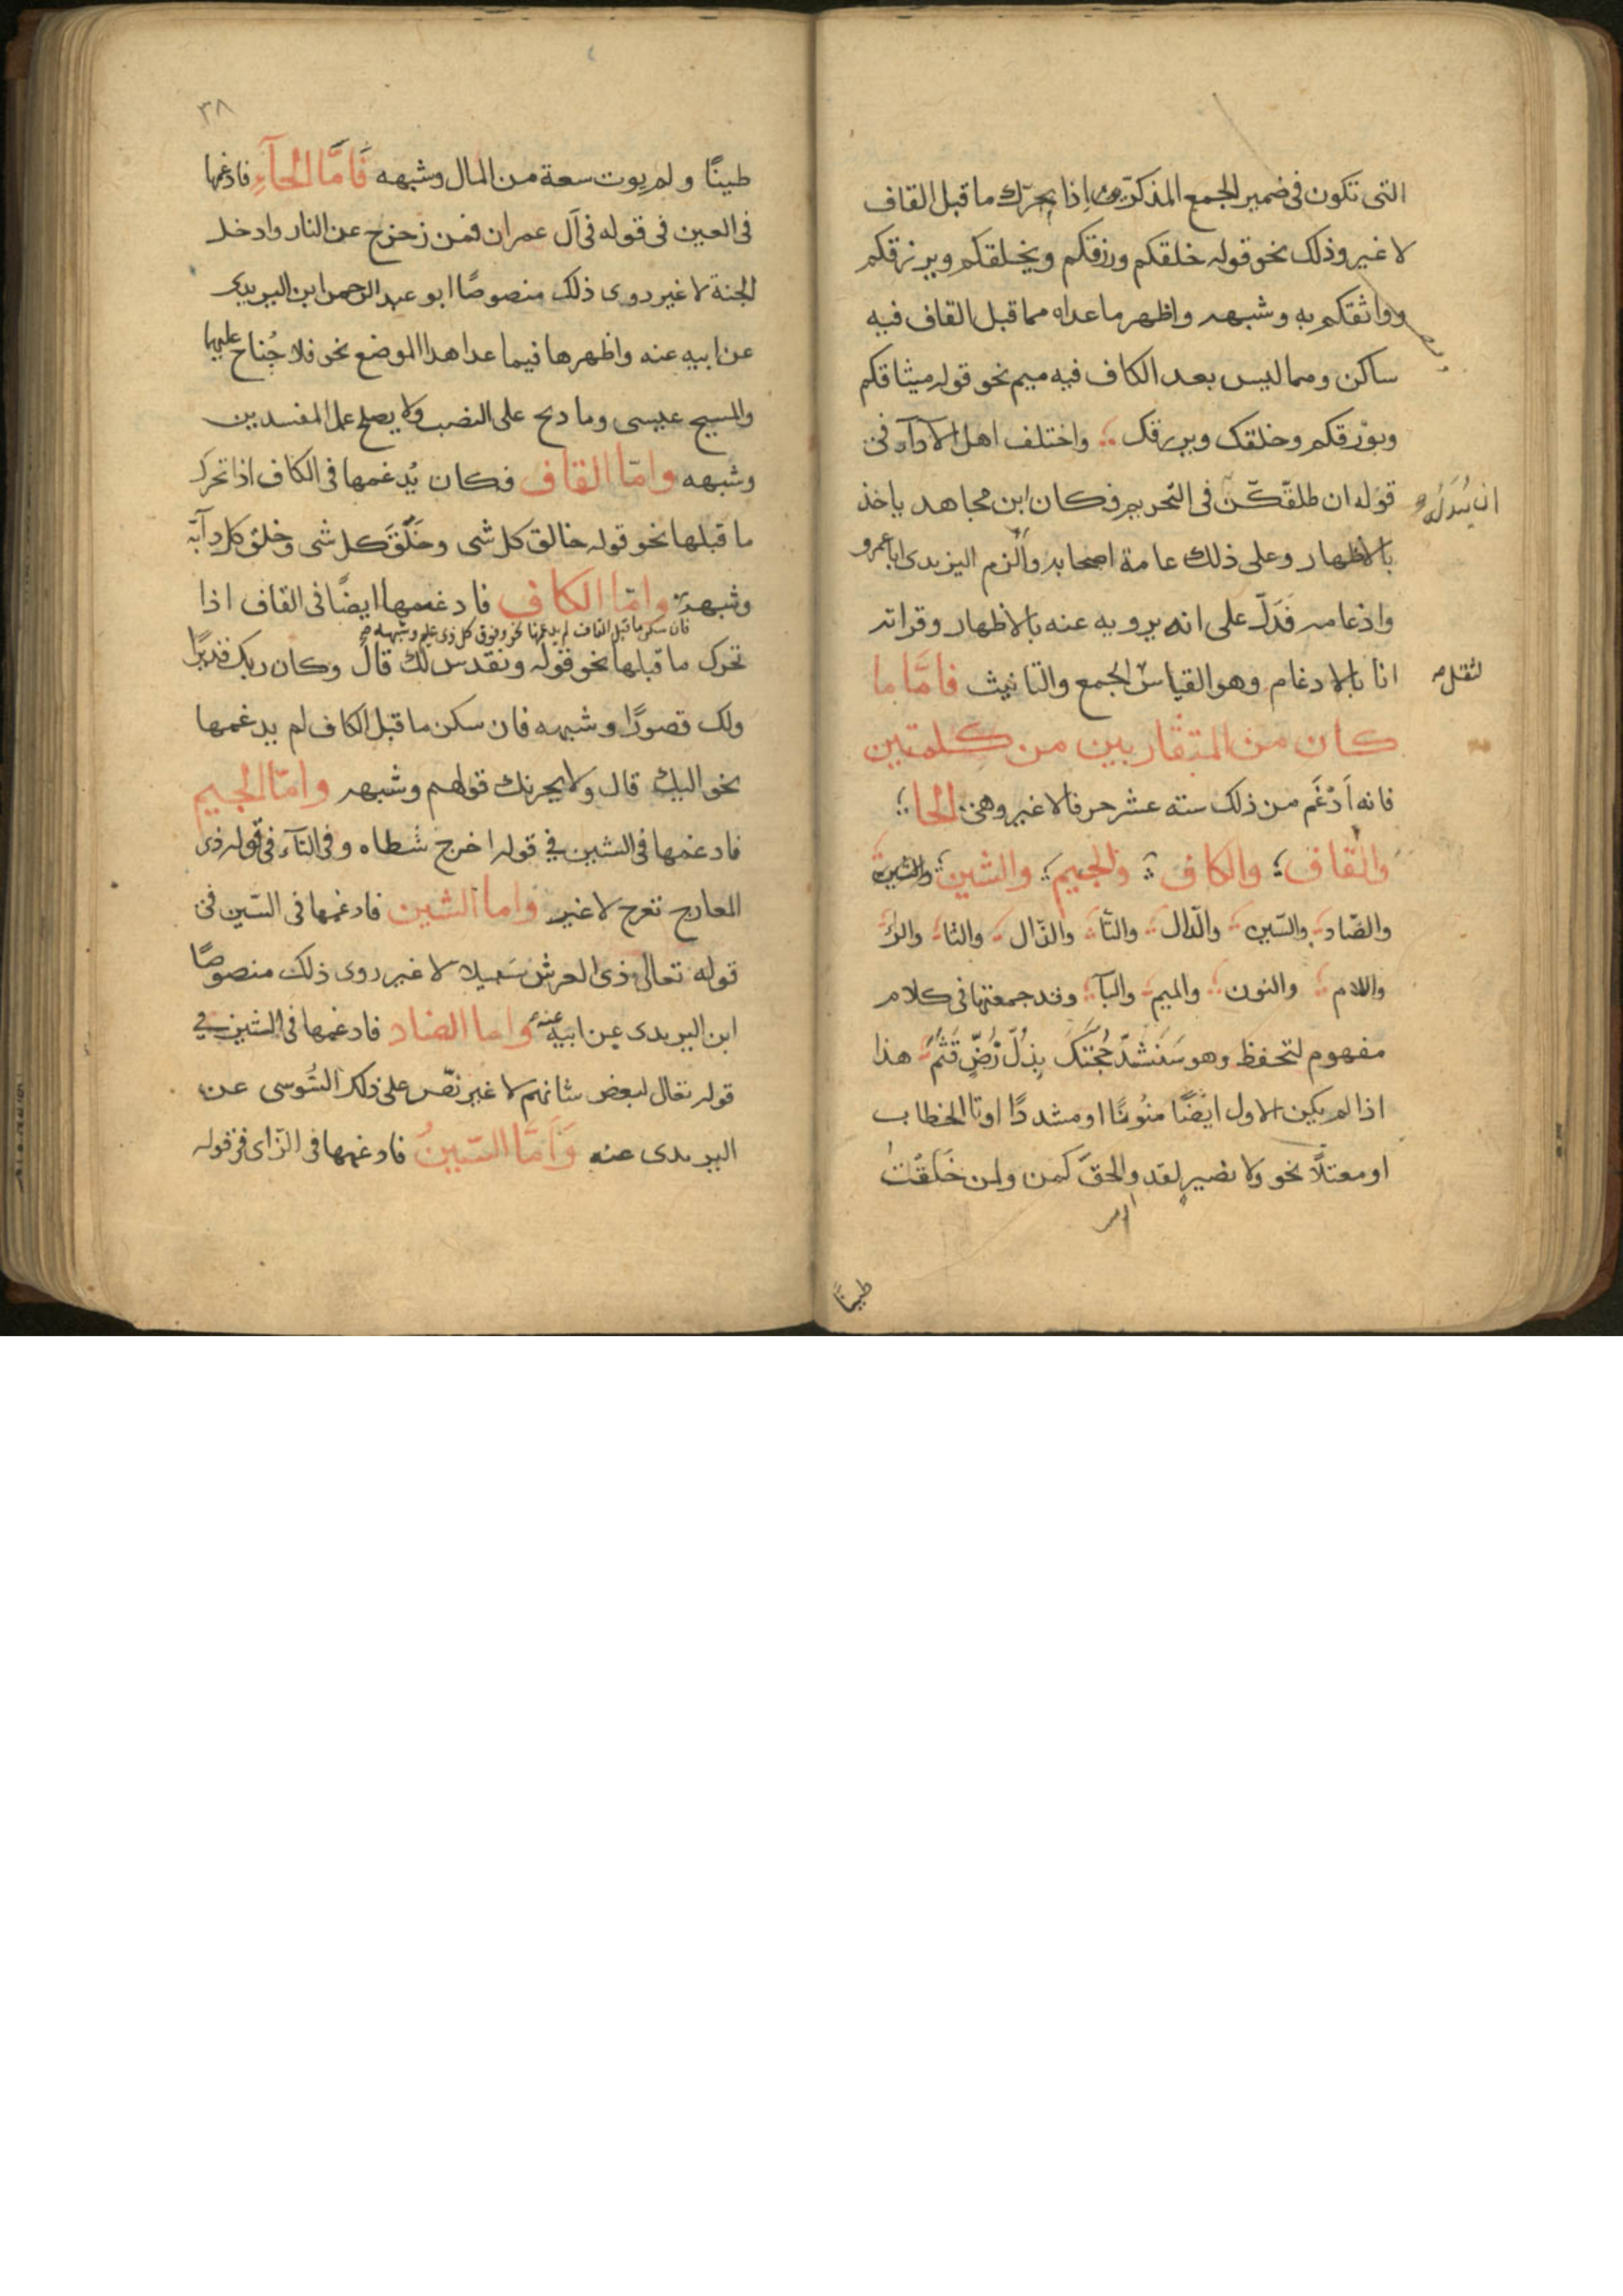 التى تكون فى ضمير الجمع المذكرين اذا تحرك ما قبل القاف
لا غير وذلك نحو قوله خلقكم ورزقكم ويخلقكم ويرزقكم
وواثقكم به وشبهه واظهر ما عداه مما قبل القاف فيه
ساكن ومما ليس بعد الكاف فيه ميم نحو قوله ميثاقكم
وبورقكم وخلقك ويرزقك واختلف اهل الادآء فى
قوله ان طلقكن فى التحريم فكان ابن مجاهد ياخذ
ان يبدله
بالاظهار وعلى ذلك عامة اصحابه والزم اليزيدى ابا عمرو
وادغامه فدل على انه يرويه عنه بالاظهار وقراته
انا بالادغام وهو القياس الجمع والتانيث فامّا ما
لثقل
كان من المتقاربين من كلمتين
فانه اَدْغَم من ذلك سته عشر حرفا لا غير وهى الحا
والقاف والكاف والجيم والشين
والضاد والسين والدال والتا والذال والثا والرا
واللام والنون والميم والبآ وقد جمعتها فى كلام
مفهوم لتحفظ وهو سَنَشُدّ حُجَّتَكَ بِذُلّ رُضّ قَثَم هذا
اذا لم يكن الاول ايضًا منونًا او مشددًا او تا الخطاب
او معتلًا نحو ولا نصير لقد والحق كمن ولمن خَلَقْتَ
طينًا
٣٨
طينًا ولم يوت سعة من المال وشبهه فَامَّا الحآءِ فادغمها
فى العين فى قوله فى آل عمران فمن زحزح عن النار وادخل
الجنة لا غير روى ذلك منصوصًا ابو عبد الرحمن ابن اليزيدى
عن ابيه عنه واظهرها فيما عدا هذا الموضع نحو فلا جُناح عليهما
والمسيح عيسى وما ذبح على النصب ولا يصلح عمل المفسدين
وشبهه وامّا القاف فكان يُدغمها فى الكاف اذا تحرك
ما قبلها نحو قوله خالق كل شى وخَلَقَ كل شى وخلق كل دآبّة
وشبهه وامّا الكاف فادغمها ايضًا فى القاف اذا
فان سكن ما قبل القاف لم يدغمها نحو وفوق كل ذى علم وشبهه صح
تحرك ما قبلها نحو قوله ونقدس لك قال وكان ربك قديرًا
ولك قصورًا وشبهه فان سكن ما قبل الكاف لم يدغمها
نحو اليك قال ولا يحزنك قولهم وشبهه وامّا الجيم
فادغمها فى الشين فى قوله اخرج شطاه وفى التآء فى قوله ذى
المعارج تعرج لا غير واما الشين فادغمها فى السّين فى
قوله تعالى ذى العرش سَبيلا لا غير روى ذلك منصوصًا
ابن اليزيدى عن ابيه عنه واما الضاد فادغمها فى الشين فى
قوله تعالى لبعض شانهم لا غير نصّ على ذلك السُّوسى عن
اليزيدى عنه وَامَّا السّينُ فادغمها فى الزّاى فى قوله